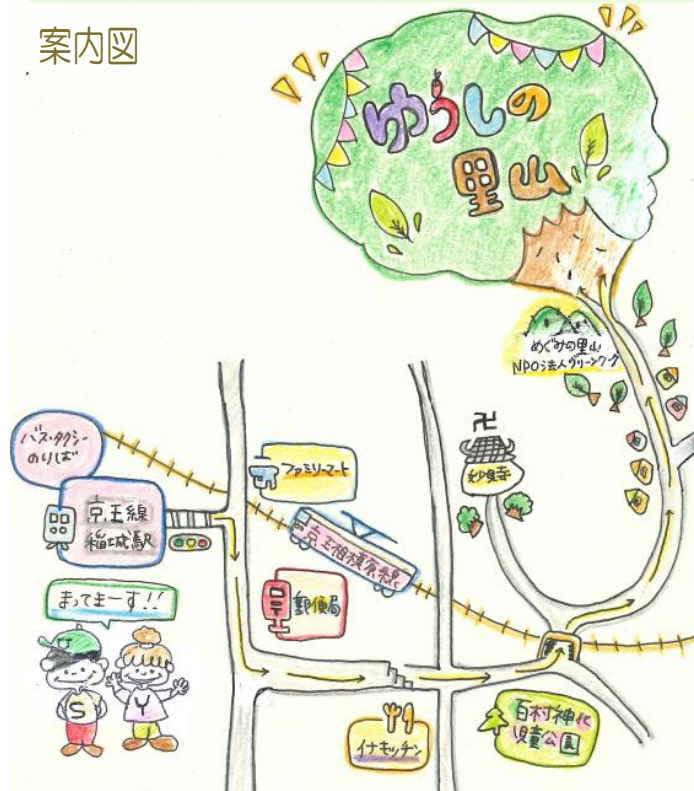 案内図
ゆうしの
里山
めぐみの里山
NPO法人グリーンワーク
バス・タクシー
のりば
京王線
稲城駅
ファミリーマート
京王相模原線
卍
妙見寺
まってまーす!!
郵便局
S
Y
イナキッチン
百村神化
児童公園